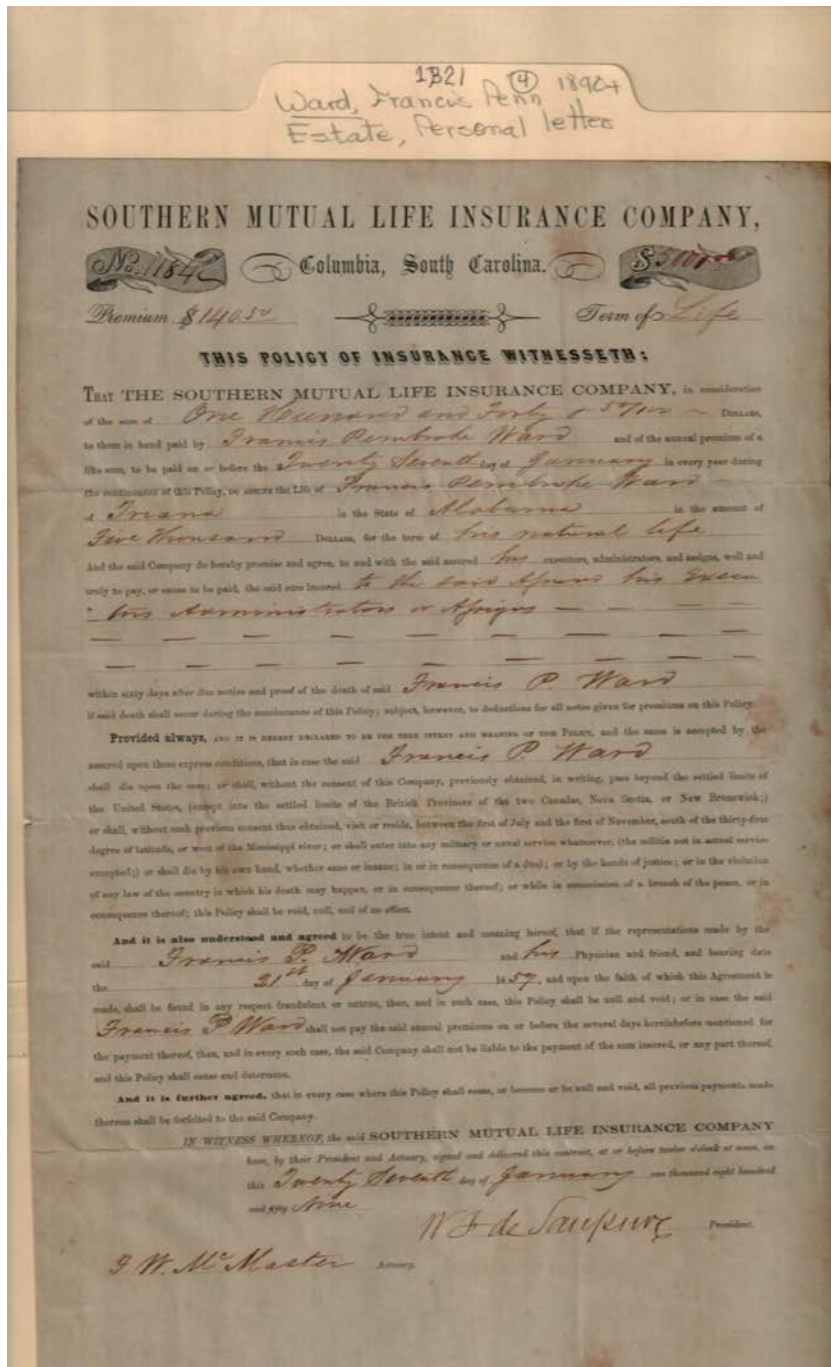 1B21 ④ 1890+
Ward, Francis Penn
Estate, Personal letter
SOUTHERN MUTUAL LIFE INSURANCE COMPANY,
No. 1184 Columbia, South Carolina. $5000
Premium $140 50 Term of Life
THIS POLICY OF INSURANCE WITNESSETH:
THAT THE SOUTHERN MUTUAL LIFE INSURANCE COMPANY, in consideration
of the sum of One Hundred and Forty & 50/100 DOLLARS,
to them in hand paid by Francis Pembroke Ward and of the annual premium of a
like sum, to be paid on or before the Twenty Seventh day of January in every year during
the continuance of this Policy, DO ASSURE the Life of Francis Pembroke Ward
of Triana in the State of Alabama in the amount of
Five Thousand DOLLARS, for the term of his natural life
And the said Company do hereby promise and agree, to and with the said assured his executors, administrators, and assigns, well and
truly to pay, or cause to be paid, the said sum insured to the said Assured his Execu
tors Administrators or Assigns
within sixty days after due notice and proof of the death of said Francis P. Ward
if said death shall occur during the continuance of this Policy; subject, however, to deductions for all notes given for premiums on this Policy.
Provided always, AND IT IS HEREBY DECLARED TO BE THE TRUE INTENT AND MEANING OF THIS POLICY, and the same is accepted by the
assured upon these express conditions, that in case the said Francis P. Ward
shall die upon the seas; or shall, without the consent of this Company, previously obtained, in writing, pass beyond the settled limits of
the United States, (except into the settled limits of the British Provinces of the two Canadas, Nova Scotia, or New Brunswick;)
or shall, without such previous consent thus obtained, visit or reside, between the first of July and the first of November, south of the thirty-first
degree of latitude, or west of the Mississippi river; or shall enter into any military or naval service whatsoever, (the militia not in actual service
excepted;) or shall die by his own hand, whether sane or insane; in or in consequence of a duel; or by the hands of justice; or in the violation
of any law of the country in which his death may happen, or in consequence thereof; or while in commission of a breach of the peace, or in
consequence thereof; this Policy shall be void, null, and of no effect.
And it is also understood and agreed to be the true intent and meaning hereof, that if the representations made by the
said Francis P. Ward and his Physician and friend, and bearing date
the 21st day of January 1859, and upon the faith of which this Agreement is
made, shall be found in any respect fraudulent or untrue, then, and in such case, this Policy shall be null and void; or in case the said
Francis P. Ward shall not pay the said annual premiums on or before the several days hereinbefore mentioned for
the payment thereof, then, and in every such case, the said Company shall not be liable to the payment of the sum insured, or any part thereof,
and this Policy shall cease and determine.
And it is further agreed, that in every case where this Policy shall cease, or become or be null and void, all previous payments made
thereon shall be forfeited to the said Company.
IN WITNESS WHEREOF, the said SOUTHERN MUTUAL LIFE INSURANCE COMPANY
have, by their President and Actuary, signed and delivered this contract, at or before twelve o'clock at noon, on
this Twenty Seventh day of January one thousand eight hundred
and fifty Nine
W F de Saussure President.
J W. McMaster Actuary.